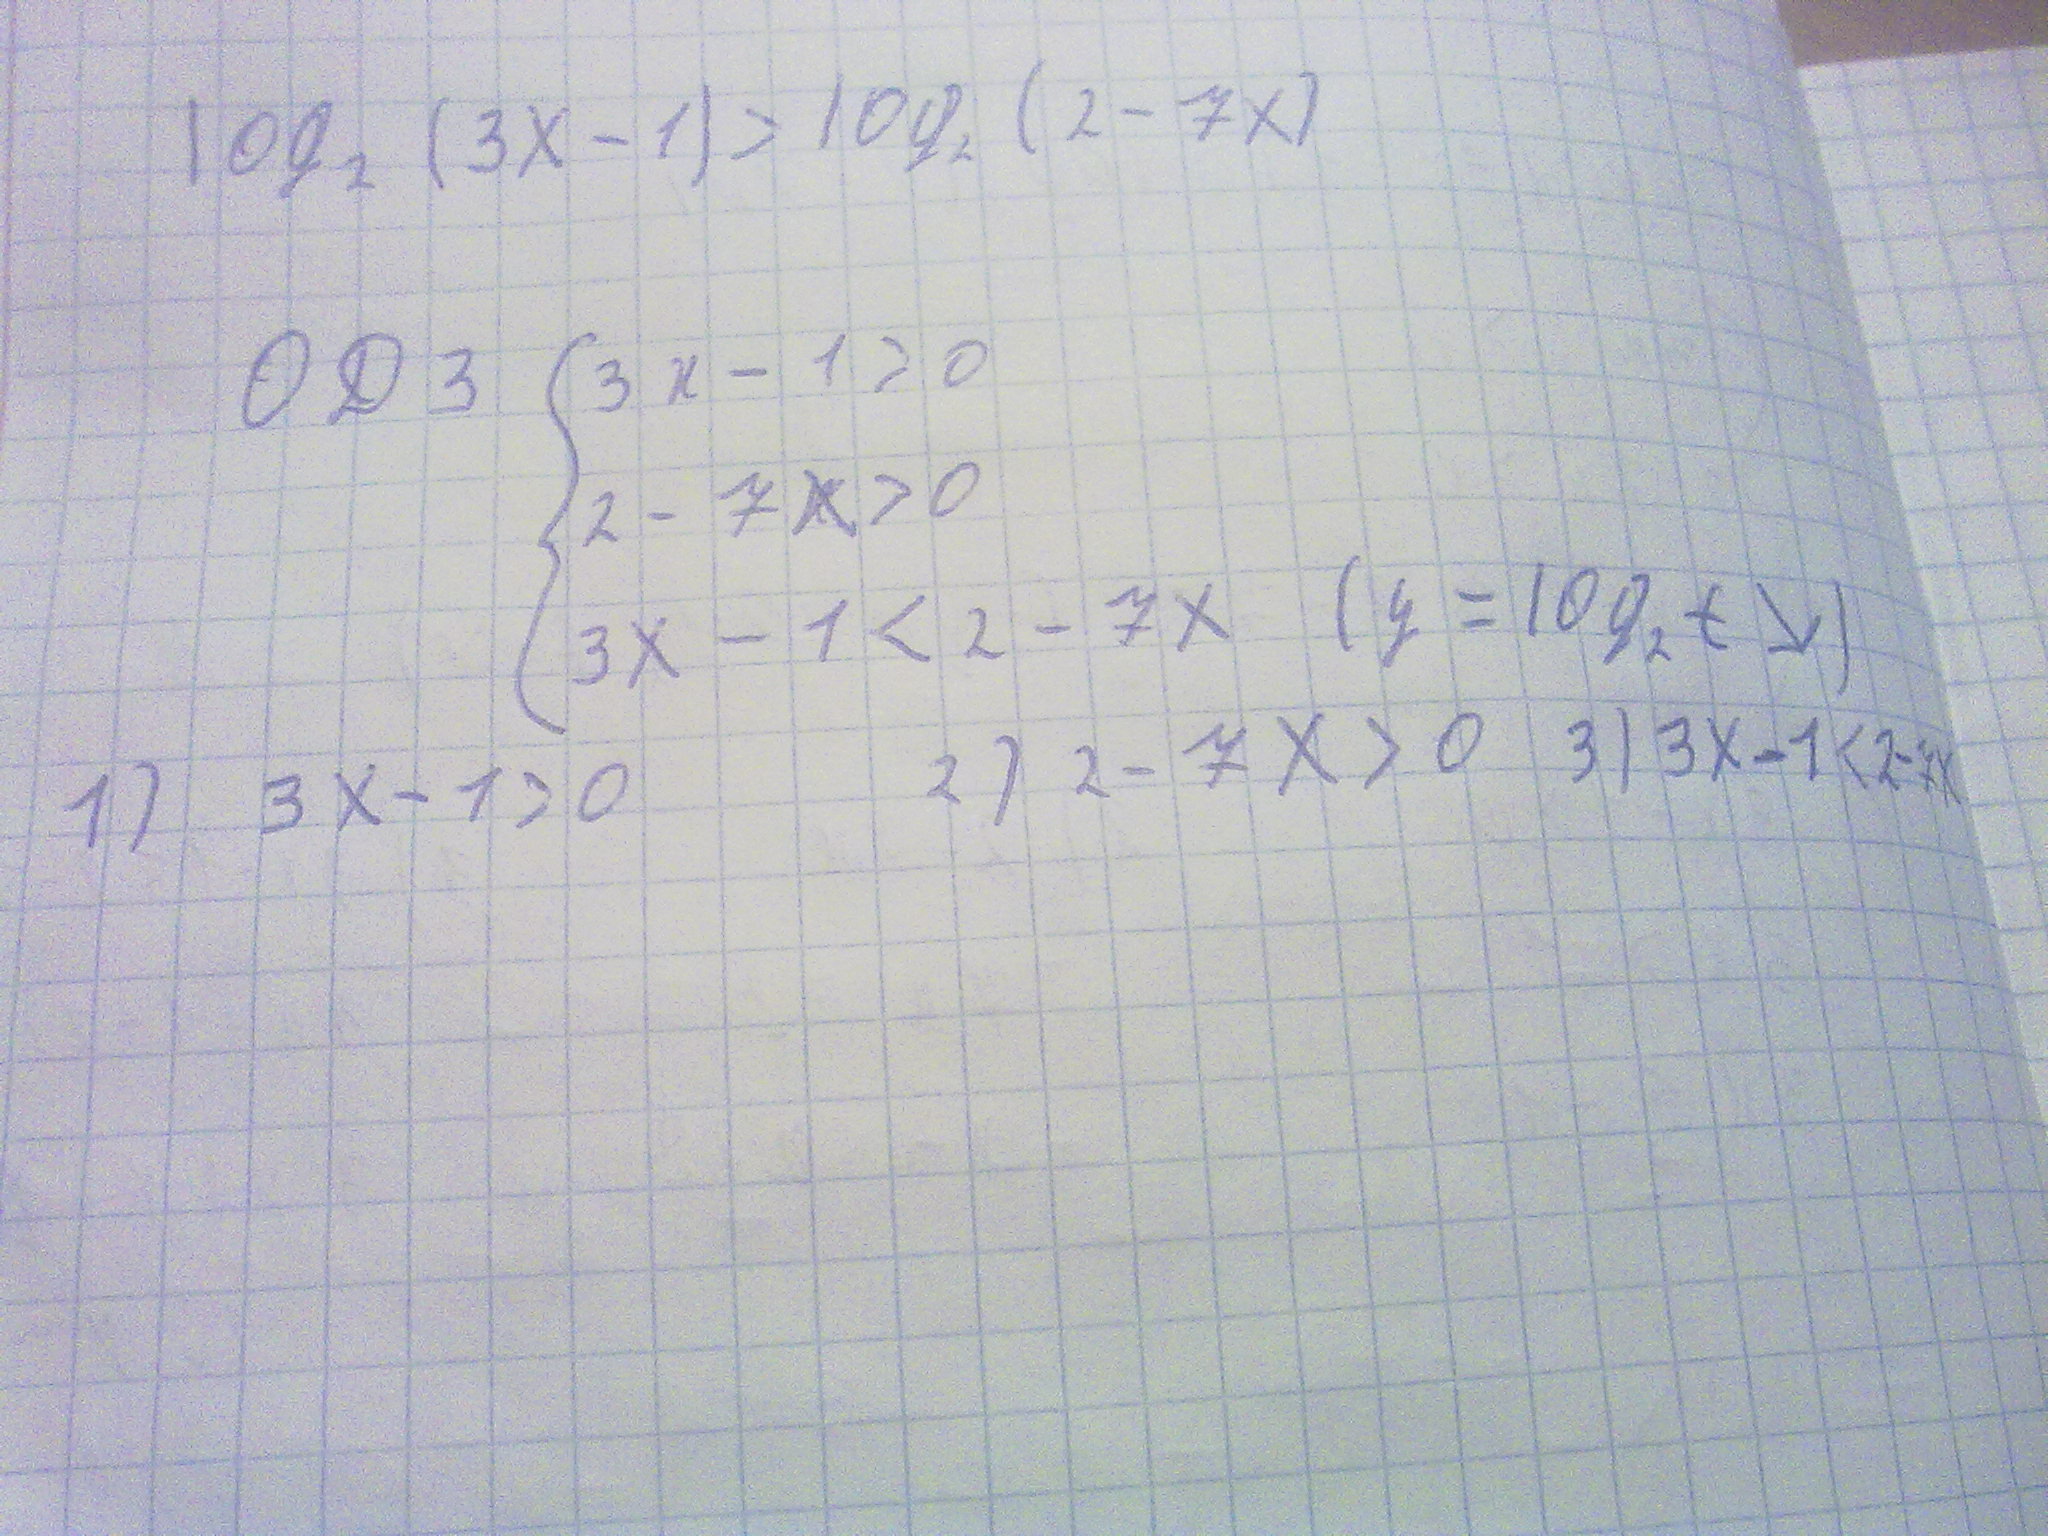 log₂ (3x-1) > log₂ (2-7x)
ОДЗ { 3x-1>0
2-7x>0
3x-1<2-7x (y=log₂t ↘)
1) 3x-1>0 2) 2-7x>0 3) 3x-1<2-7x